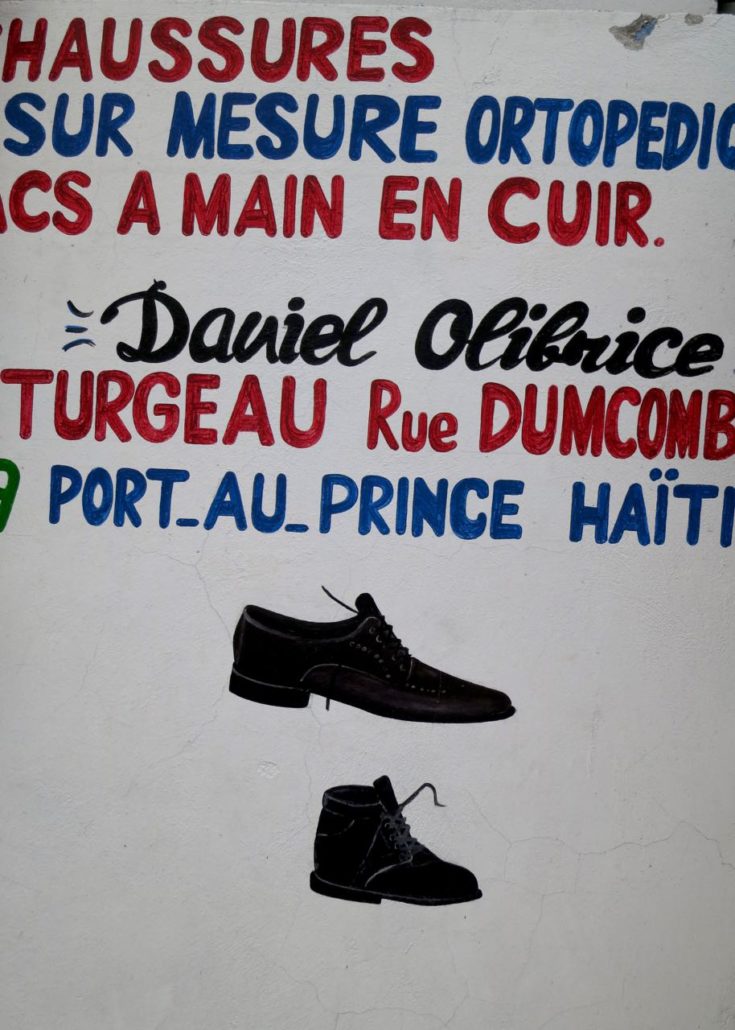 CHAUSSURES
SUR MESURE ORTOPEDIQ
ACS A MAIN EN CUIR.
Daniel Olibrice
TURGEAU Rue DUMCOMB
PORT-AU-PRINCE HAÏTI